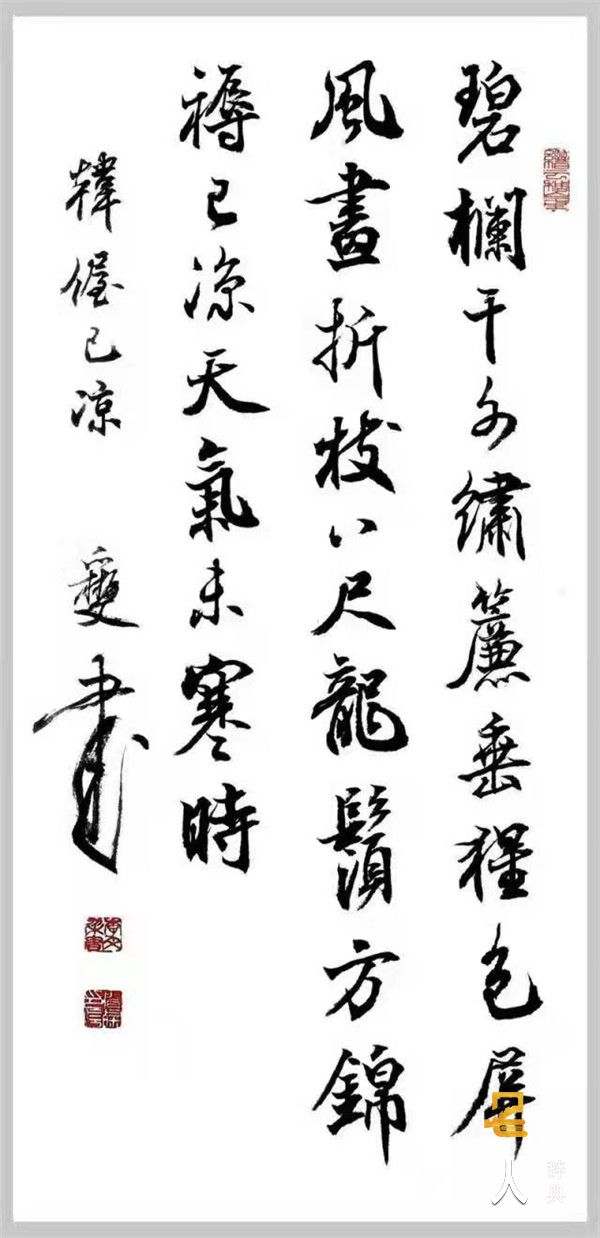 碧欄干外繡簾垂猩色屏
風畫折枝八尺龍鬚方錦
褥已凉天氣未寒時
韓偓已凉 書
名人
辞典